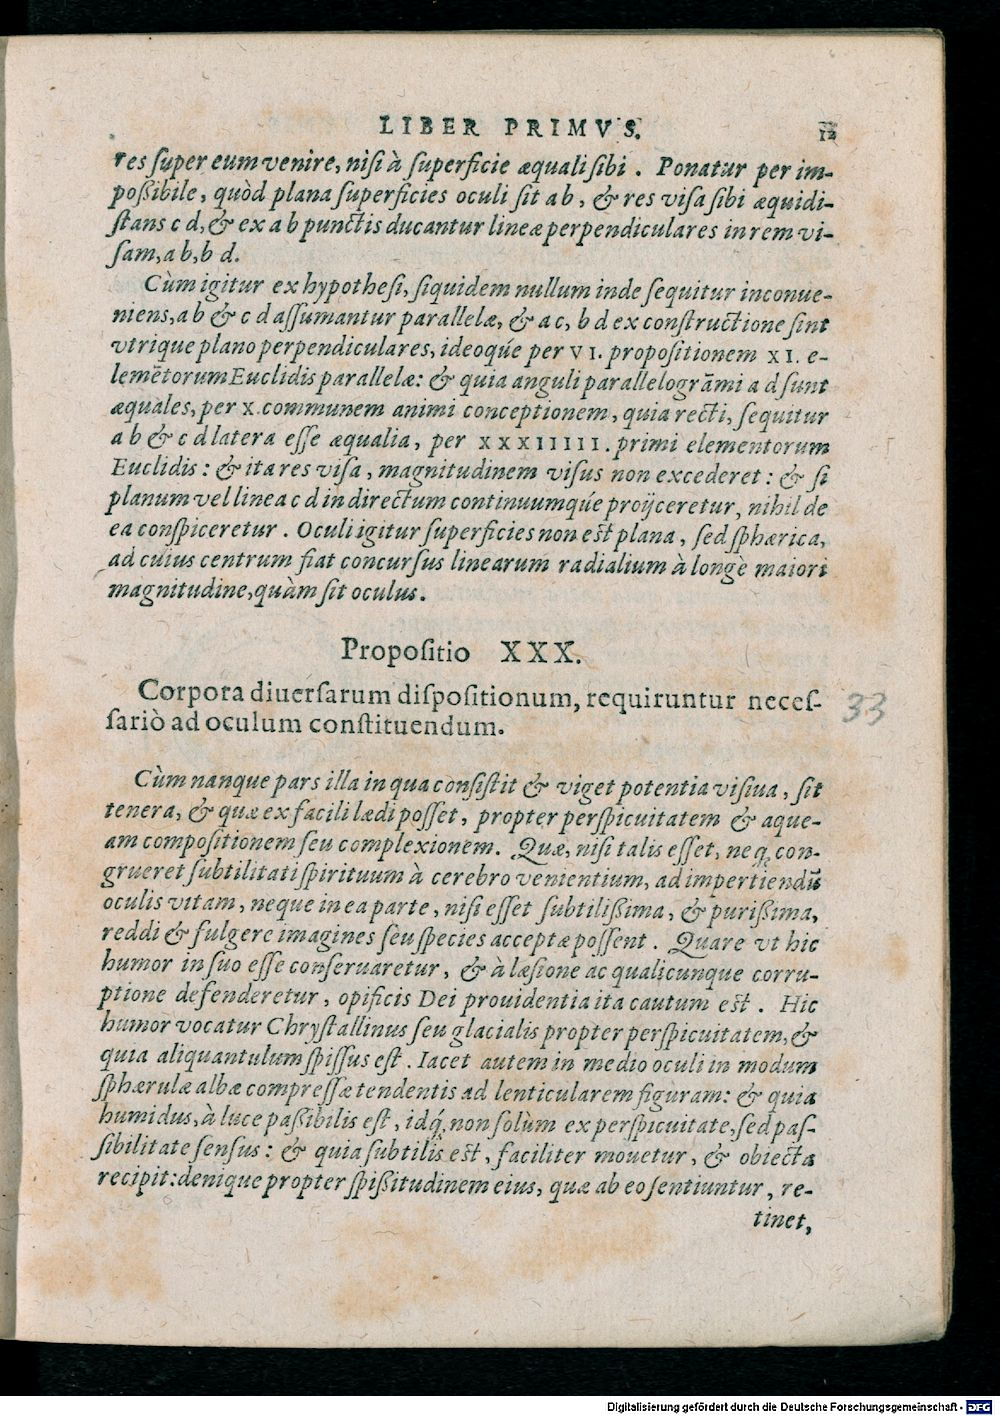 LIBER PRIMVS. 12
res super eum venire, nisi à superficie æquali sibi. Ponatur per im-
poßibile, quòd plana superficies oculi sit a b, & res visa sibi æquidi-
stans c d, & ex a b punctis ducantur lineæ perpendiculares in rem vi-
sam, a b, b d.
Cùm igitur ex hypothesi, siquidem nullum inde sequitur inconue-
niens, a b & c d assumantur parallelæ, & a c, b d ex constructione sint
vtrique plano perpendiculares, ideoqúe per VI. propositionem XI. e-
lemẽtorum Euclidis parallelæ: & quia anguli parallelogrãmi a d sunt
æquales, per X. communem animi conceptionem, quia recti, sequitur
a b & c d latera esse æqualia, per XXXIIIII. primi elementorum
Euclidis: & ita res visa, magnitudinem visus non excederet: & si
planum vel linea c d in directum continuumqúe proijceretur, nihil de
ea conspiceretur. Oculi igitur superficies non est plana, sed sphærica,
ad cuius centrum fiat concursus linearum radialium à longè maiori
magnitudine, quàm sit oculus.
Propositio XXX.
Corpora diuersarum dispositionum, requiruntur neces-
sariò ad oculum constituendum.
33
Cùm nanque pars illa in qua consistit & viget potentia visiua, sit
tenera, & quæ ex facili lædi posset, propter perspicuitatem & aque-
am compositionem seu complexionem. Quæ, nisi talis esset, neq; con-
grueret subtilitati spirituum à cerebro venientium, ad impertiendũ
oculis vitam, neque in ea parte, nisi esset subtilißima, & purißima,
reddi & fulgere imagines seu species acceptæ possent. Quare vt hic
humor in suo esse conseruaretur, & à læsione ac qualicunque corru-
ptione defenderetur, opificis Dei prouidentia ita cautum est. Hic
humor vocatur Chrystallinus seu glacialis propter perspicuitatem, &
quia aliquantulum spissus est. Iacet autem in medio oculi in modum
sphærulæ albæ compressæ tendentis ad lenticularem figuram: & quia
humidus, à luce paßibilis est, idq́; non solùm ex perspicuitate, sed pas-
sibilitate sensus: & quia subtilis est, faciliter mouetur, & obiecta
recipit: denique propter spißitudinem eius, quæ ab eo sentiuntur, re-
tinet,
Digitalisierung gefördert durch die Deutsche Forschungsgemeinschaft - DFG